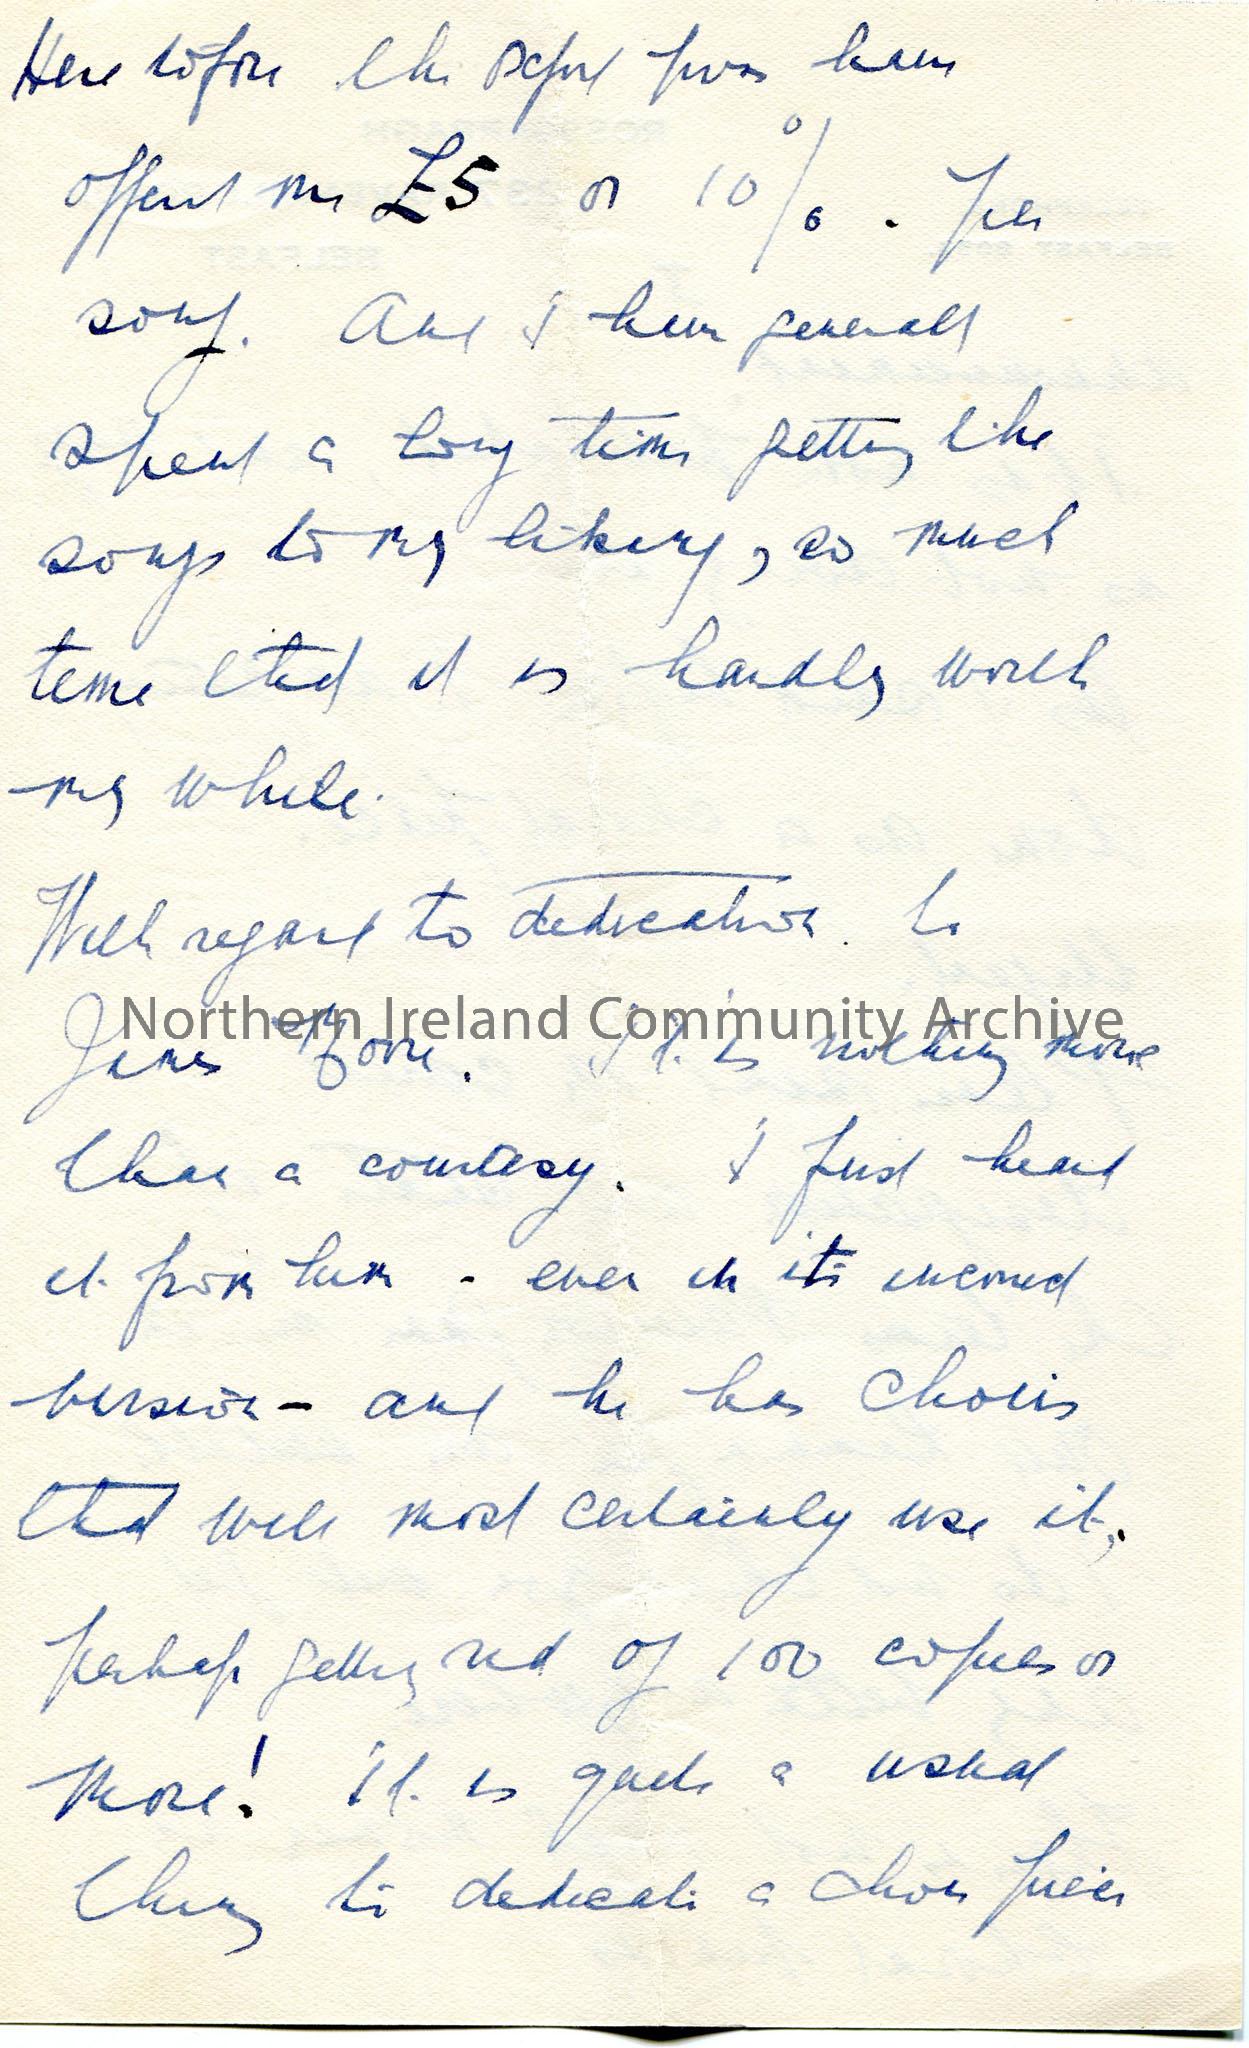 Heretofore the Oxford press have
offered me £5 or 10% . per
song. And I have generally
spent a long time getting the
songs to my liking, so much
time that it is hardly worth
my while.
With regard to dedication to
James Moore. It is nothing more
than a courtesy. I first heard
it from him - even in its
version - and he has choirs
that will most certainly use it,
perhaps getting rid of 100 copies or
more! It is quite a usual
thing to dedicate a choir piece
Northern Ireland Community Archive